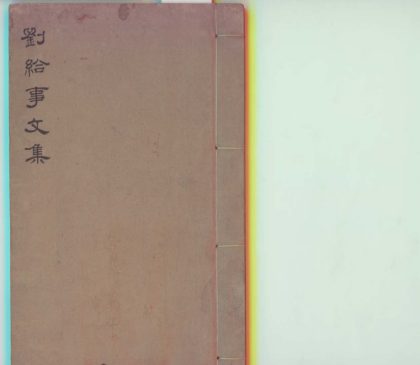 劉給事文集